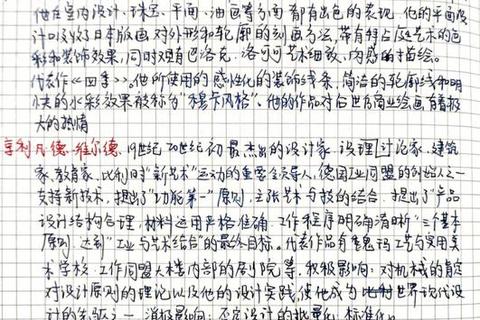 他在室内设计、珠宝、平面、油画等方面都有出色的表现。他的平面设
计吸收了日本版画对外形和轮廓的刻画方法,带有拜占庭艺术的色
彩和装饰效果,同时又有巴洛克、洛可可艺术细致、肉感的描绘。
代表作《四季》。他所使用的感性化的装饰线条,简洁的轮廓线和明
快的水彩效果被称为"穆卡风格"。他的作品对后世商业绘画有着极
大的热情
亨利·凡·德·维尔德,19世纪20世纪初最杰出的设计家、设理讨论家、建筑
家、教育家,比利时"新艺术"运动的重要领导人,德国工业同盟的创始人之一
支持新技术,提出了"功能第一"原则,主张艺术与技的结合,提出了"产品
设计结构合理,材料运用严格准确,工作程序明确清晰"三个基本
原则,达到"工业与艺术结合"的最终目标。代表作品有魏玛工艺与实用美
术学校、工作同盟大楼内部的剧院等,积极影响:对机械的肯定
对设计原则的理论以及他的设计实践,使他成为世界现代设
计的先驱之一 消极影响:否定设计的批量化、标准化